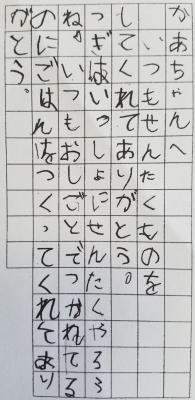 かあちゃんへ
いつもせんたくものを
してくれてありがとう。
つぎはいっしょにせんたくやろう
ね。いつもおしごとでつかれてる
のにごはんをつくってくれてあり
がとう。